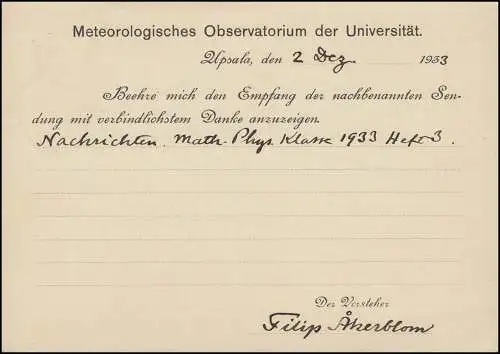 Meteorologisches Observatorium der Universität.
Upsala, den 2 Dez. 1933
Beehre mich den Empfang der nachbenannten Sen-
dung mit verbindlichstem Danke anzuzeigen.
Nachrichten. Math. Phys. Klasse 1933 Heft 3.
Der Vorsteher
Filip Åkerblom